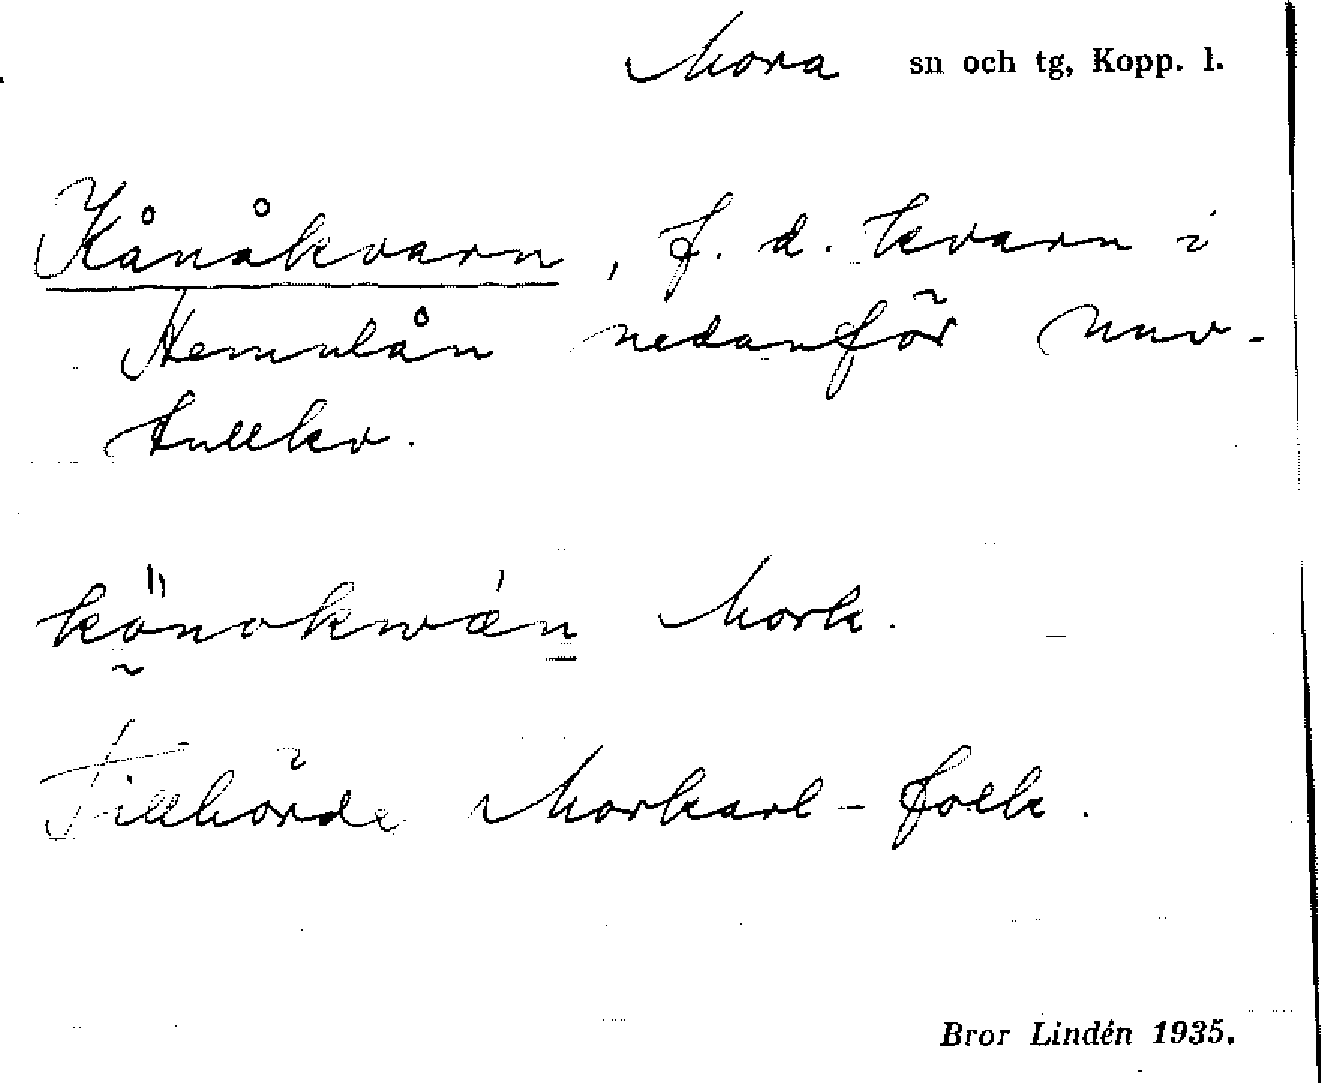 Mora sn och tg, Kopp. l.
Kånåkvarn, f. d. kvarn i
Hemulån nedanför Nuv-
tullkv.
könokwán Mork.
Tillhörde Morkarl-folk.
Bror Lindén 1935.